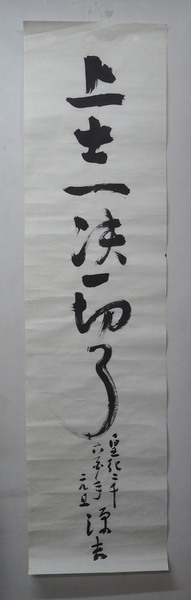 上士一決一切了
皇紀二千
六百
元旦